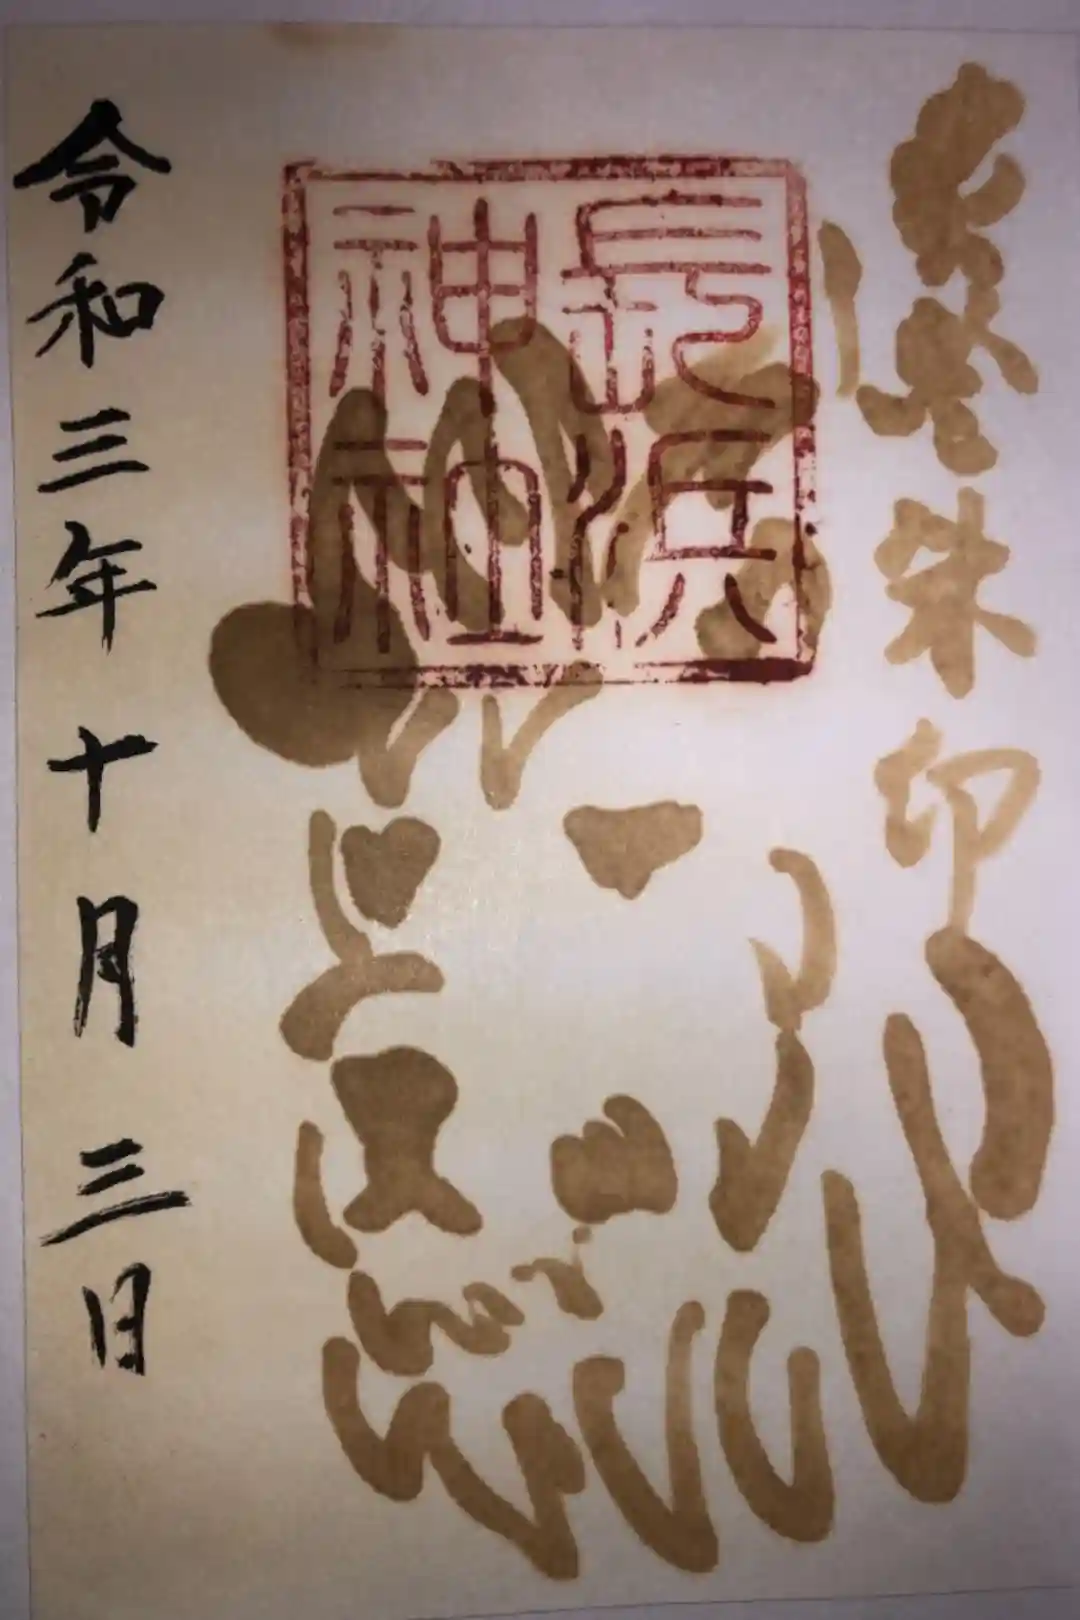 朱印
長浜
神社
令和三年十月三日